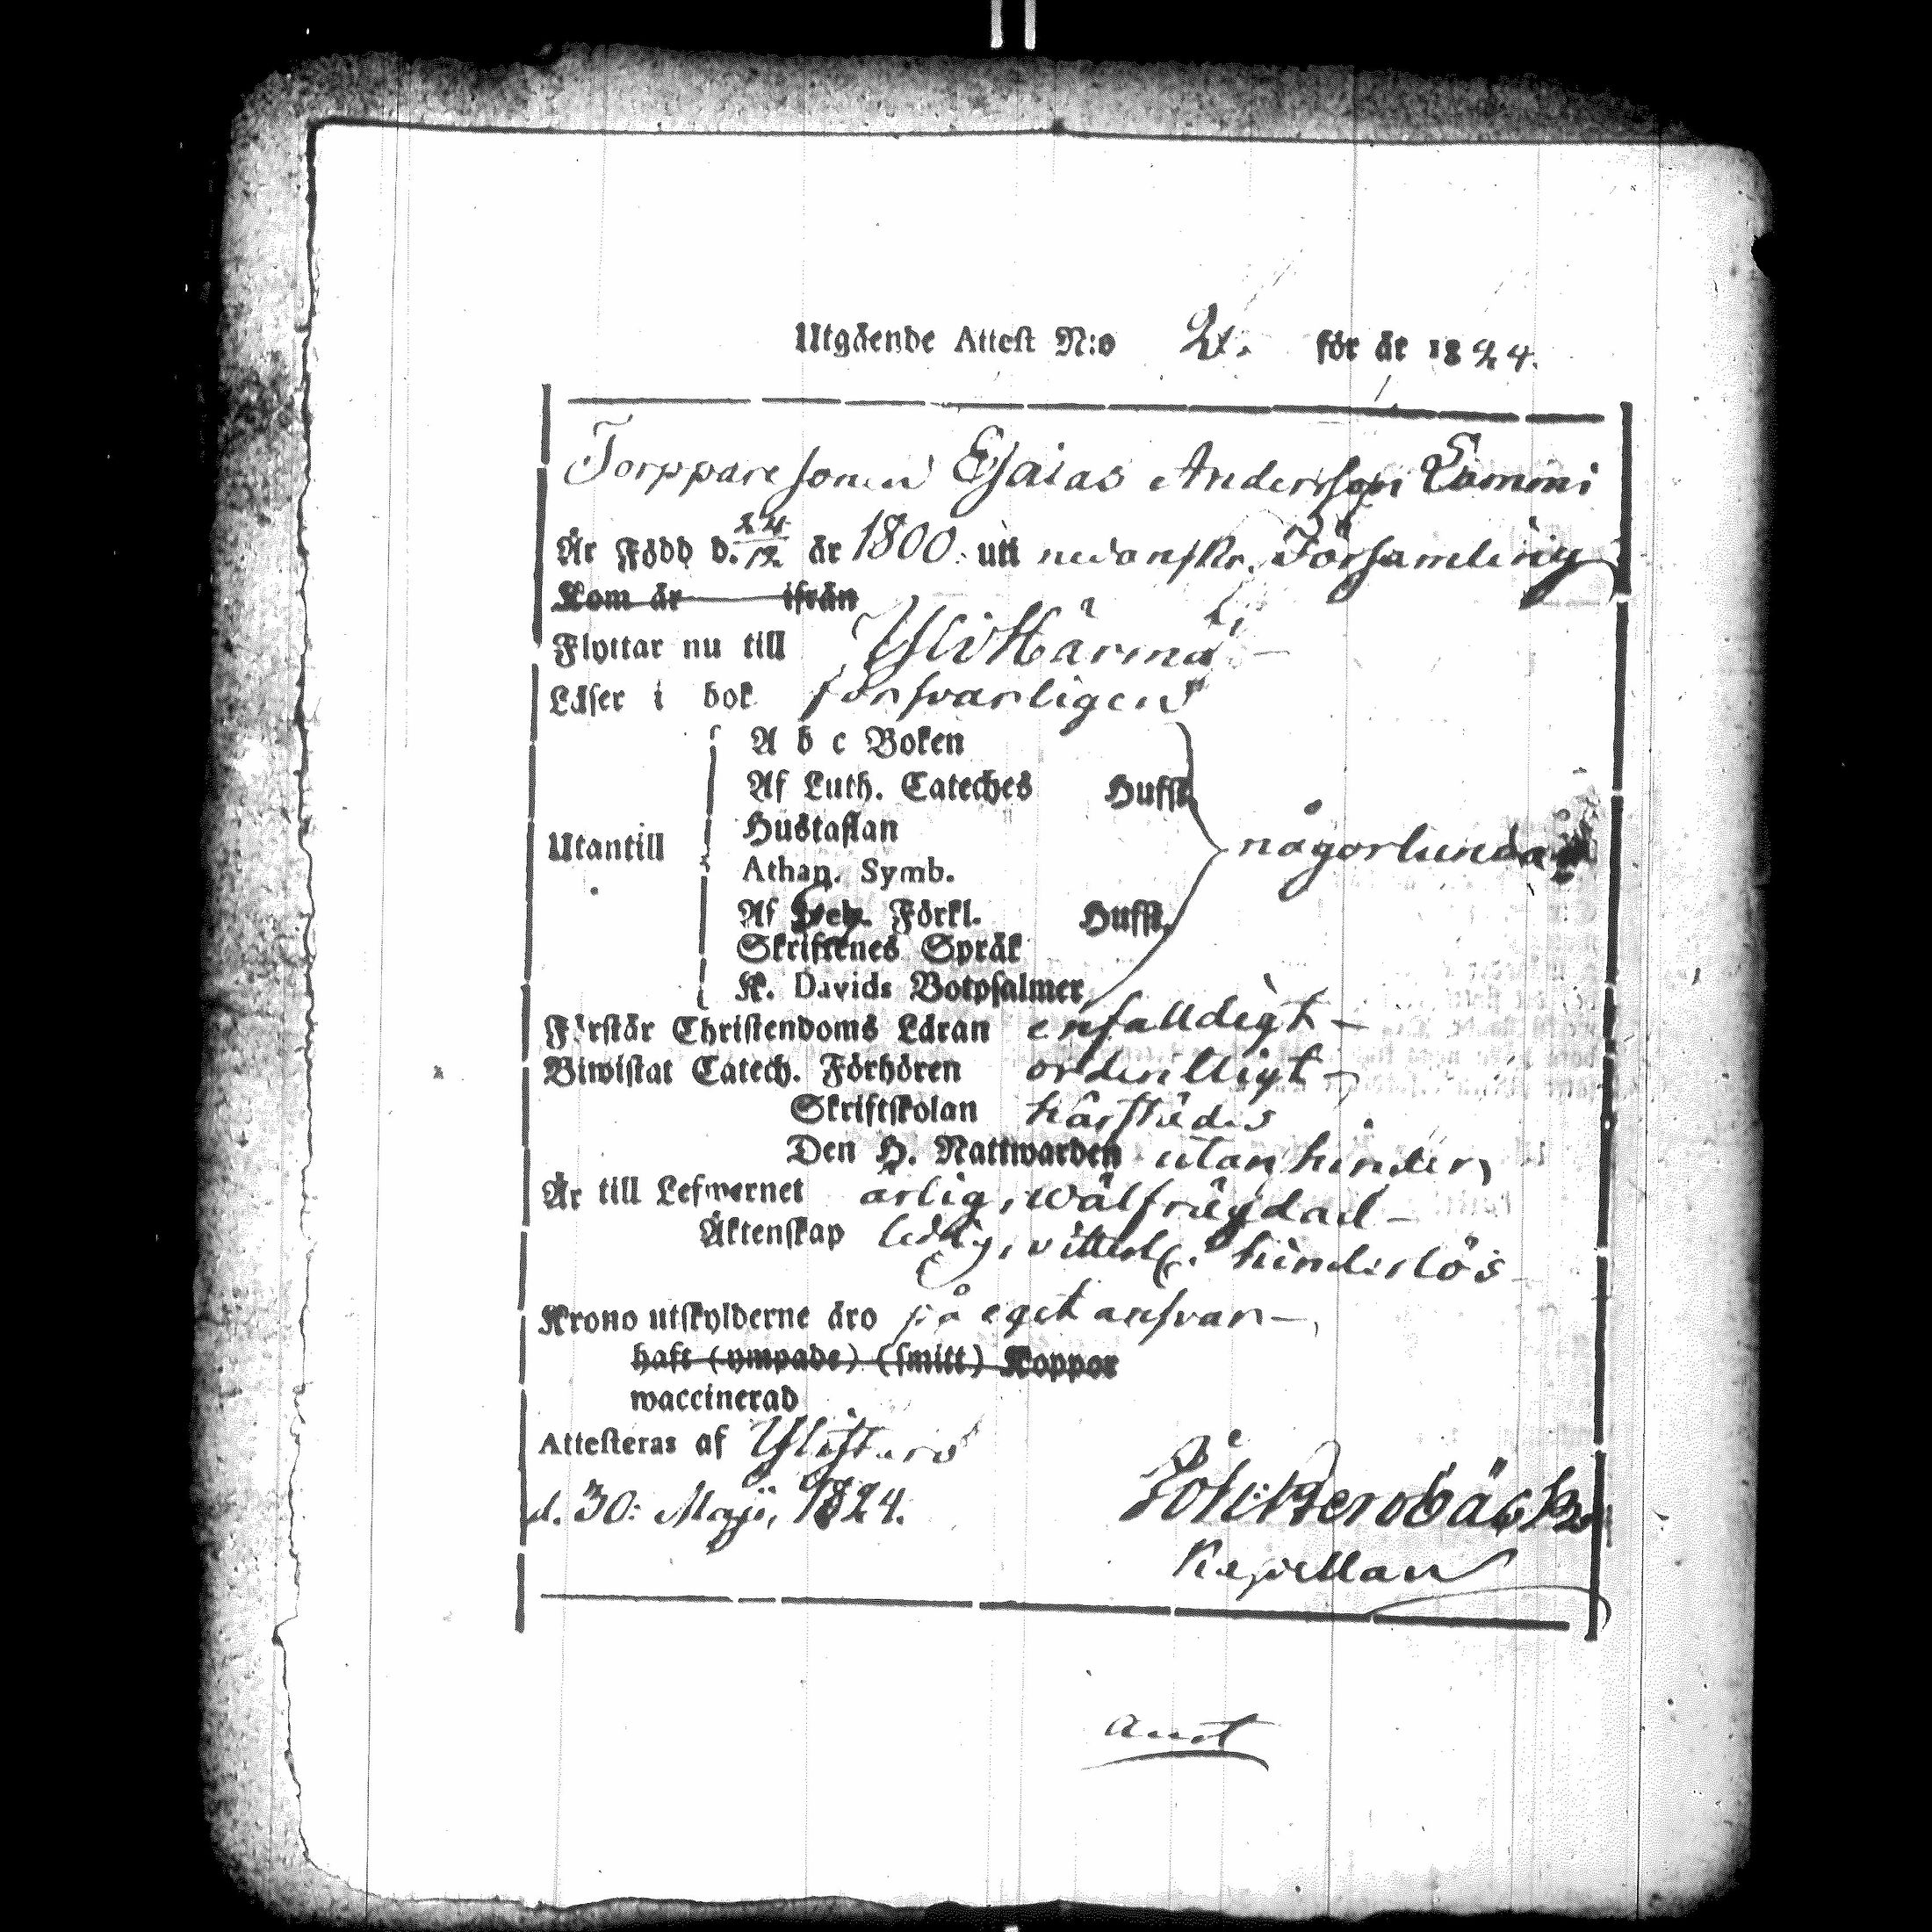 Utgående Attest N:o 21. för år 1824.
Torppare sonen Esaias Andersson Lammi
Är Född d. 24/12 år 1800. uti nedanskr. Församling
Kom år ifrån
Flyttar nu till YliHärmä
Läser i bok försvarligen
A b c Boken
Af Luth. Cateches Hufst.
Hustaflan
Utantill någorlunda
Athan. Symb.
Af Förkl. Hufst.
Skriftenes Språk
K. Davids Botpsalmer
Förstår Christendoms Läran enfalldigt
Biwistat Catech. Förhören ordentligt
Skriftskolan härstädes
Den H. Nattwarden utan hinder
Är till Lefwernet ärlig, wälfrägdad
Äktenskap ledig, vitterl. hinderlös
Krono utskylderne äro på eget ansvar
haft (ympade) (smitt) Koppor
waccinerad
Attesteras af Ylistaro
d. 30: Maji, 1824.
Kapellan